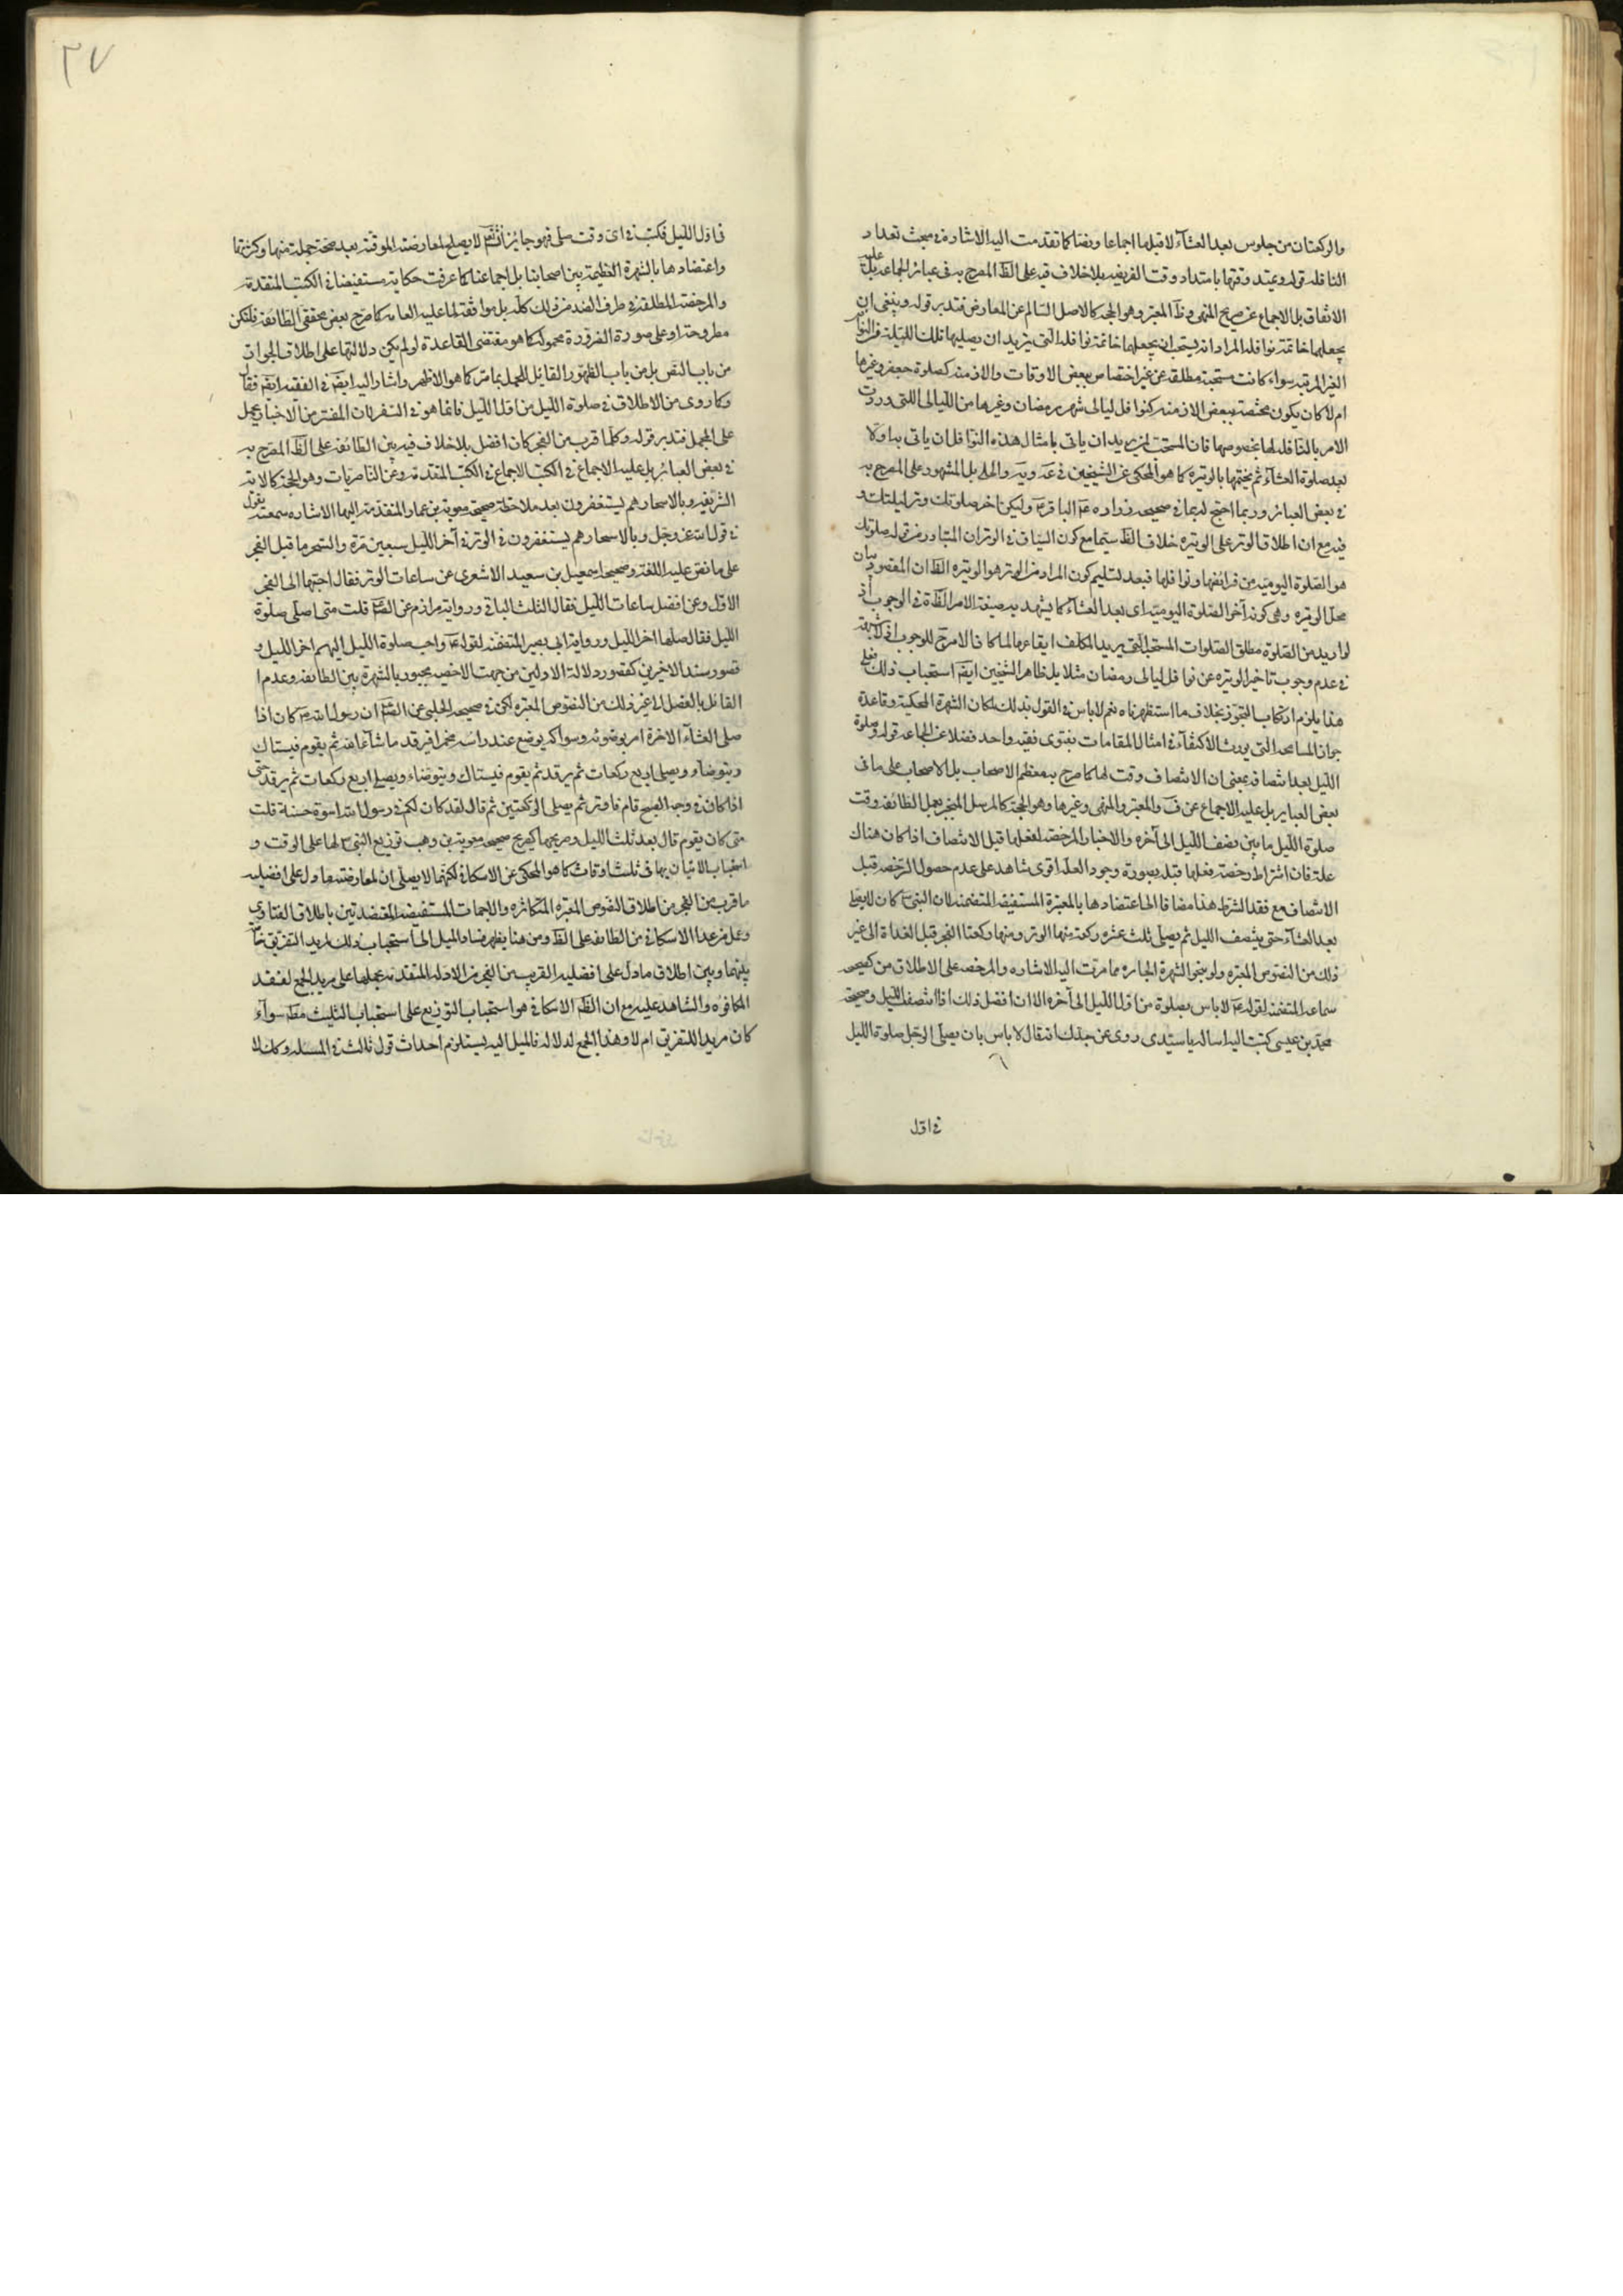 والركعتان من جلوس بعد العشآء لا قبلها اجماعا ونصا كما تقدمت اليه الاشارة فى مبحث تعداد
النافله قوله ويمتد وقتهما بامتداد وقت الفريضه بلا خلاف فيه على الظ المصرح به فى عبائر الجماعه بل عليه
الاتفاق بل الاجماع عن صريح المنتهى وظ المعتبر وهو الحجه كالاصل السالم عن المعارض فتدبر قوله وينبغى ان
يجعلهما خاتمة نوافله المراد انه يستحب ان يجعلهما خاتمة نوافله التى يريد ان يصليها تلك الليلة من النوافل
الغير المرتبه سواء كانت مستحبة مطلقه عن غير اختصاص ببعض الاوقات والازمنه كصلوة جعفر وغيرها
ام لا كان يكون مختصة ببعض الازمنه كنوافل ليالى شهر رمضان وغيرها من الليالى اللتى وردت
الامر بالنافله لها بخصوصها فان المستحب لمن يريد ان ياتى بامثال هذه النوافل ان ياتى بها ولا
بعد صلوة العشآء ثم يختمها بالوتيرة كما هو المحكى عن الشيخين فى عه ويه والحلى بل المشهور على المصرح به
فى بعض العبائر وربما احتج له بما فى صحيحه زراره عن الباقر ع وليكن اخر صلوتك وتر ليلتك و
فيه مع ان اطلاق الوتر على الوتيره خلاف الظ سيما مع كون السياق فى الوتر ان المتبادر من قوله صلوتك
هو الصلوة اليوميه من فرائضها ونوافلها فبعد تسليم كون المراد من الوتر هو الوتيره الظ ان المقصود بيان
محل الوتيره وهى كونه آخر الصلوة اليوميه اى بعد العشآء كما يشهد به صيغة الامر الظاهرة فى الوجوب اذ
لو اريد من الصلوة مطلق الصلوات المستحبه التى يريد المكلف ايقاعها لما كان الامر للوجوب اذ لا شبهة
فى عدم وجوب تاخير الوتيره عن نوافل ليالى رمضان مثلا بل ظاهر الشيخين ايضا استحباب ذلك فعلى
هذا يلزم ارتكاب التجوز بخلاف ما استظهرناه نعم لا باس فى القول بذلك لمكان الشهرة المحكية وقاعدة
جواز المسامحه التى يورث الاكتفآء فى امثال المقامات بفتوى فقيه واحد فضلا عن الجماعه قوله وصلوة
الليل بعد انتصافه بمعنى ان الانتصاف وقت لها كما صرح به معظم الاصحاب بل الاصحاب على ما فى
بعض العباير بل عليه الاجماع عن ف والمعتبر والمنتهى وغيرها وهو الحجة كالمرسل المنجبر بعمل الطائفه وقت
صلوة الليل ما بين نصف الليل الى آخره والاخبار المرخصه لفعلها قبل الانتصاف اذا كان هناك
علة فان اشتراط رخصة فعلها قبله بصورة وجود العله اقوى شاهد على عدم حصول الرخصه قبل
الانتصاف مع فقد الشرط هذا مضافا الى اعتضادها بالمعتبرة المستفيضه المتضمنه لان النبى ص كان لا يصلى
بعد العشآء حتى ينتصف الليل ثم يصلى ثلث عشره ركعة منها الوتر ومنها ركعتا الفجر قبل الغداة الى غير
ذلك من النصوص المعتبره ولو بنحو الشهرة الجابره مما مرت اليه الاشاره والمرخصه على الاطلاق من كصحيحه
سماعه المتضمنه لقوله ع لا باس بصلوة من اول الليل الى آخره الا ان افضل ذلك اذا انتصف الليل وصحيحة
محمد بن عيسى كتبت اليه اساله يا سيدى روى عن جدك انه قال لا باس بان يصلى الرجل صلوة الليل
فى اول
٢٧
فى اول الليل فكتب فى اى وقت صلى فهو جايز انشآء لا يصلح لمعارضة الموقته بعد صحة جملة منها وكثرتها
واعتضادها بالشهرة العظيمة بين اصحابنا بل اجماعنا كما عرفت حكايته مستفيضا فى الكتب المتقدمة
والمرخصة المطلقة فى طرف الضد من ذلك كله بل موافقة لما عليه العامه كما صرح بعض محققى الطائفه فلتكن
مطروحة او على صورة الضرورة محمولة كما هو مقتضى القاعدة لو لم يكن دلالتها على اطلاق الجواز
من باب النص بل من باب الظهور القابل للحمل بما مر كما هو الاظهر واشار اليه ايضا فى الفقيه ايضا فقال
وكلما روى من الاطلاق فى صلوة الليل من اول الليل فانما هو فى السفر لان المفسر من الاخبار يحمل
على المجمل فتدبر قوله وكلما قربت من الفجر كان افضل بلا خلاف فيه بين الطائفه على الظ المصرح به
فى بعض العبائر بل عليه الاجماع فى الكتب الاجماع فى الكتب المتقدمة وعن الناصريات وهو الحجة كالاية
الشريفه وبالاسحار هم يستغفرون بعد ملاحظة صحيحة معوية بن عمار المتقدمة اليها الاشاره سمعته يقول
فى قول الله عز وجل وبالاسحار هم يستغفرون فى الوتر فى آخر الليل سبعين مرة والسحر ما قبل الفجر
على ما نص عليه اللغة وصحيحه اسمعيل بن سعيد الاشعرى عن ساعات الوتر فقال احبها الى الفجر
الاول وعن افضل ساعات الليل فقال الثلث الباقى ورواية مرازم عن الصادق قلت متى اصلى صلوة
الليل فقال صلها اخر الليل ورواية ابى بصير المتضمنه لقوله ع واحب صلوة الليل اليهم اخر الليل و
قصور سند الاخيرين كقصور دلالة الاولين من جهت الاخصيه مجبور بالشهرة بين الطائفه وعدم ا
القائل بالفصل الا غير ذلك من النصوص المعتبره لكن فى صحيحه الحلبى عن الصادق ان رسول الله ص كان اذا
صلى العشآء الاخرة امر بوضوئه وسواكه يوضع عند راسه مخمرا فيرقد ما شآء الله ثم يقوم فيستاك
ويتوضاء ويصلى اربع ركعات ثم يرقد ثم يقوم فيستاك ويتوضاء ويصلى اربع ركعات ثم يرقد حتى
اذا كان فى وجه الصبح قام فاوتر ثم يصلى الركعتين ثم قال لقد كان لكم فى رسول الله اسوة حسنة قلت
متى كان يقوم قال بعد ثلث الليل وصريحها كصريح صحيحه معوية بن وهب توزيع النبى ص لها على الوقت و
استحباب الاتيان بها فى ثلث اوقات كما هو المحكى عن الاسكافى لكنهما لا يصلحان لمعارضته ما دل على افضليه
ما قربت من الفجر من اطلاق النصوص المعتبره المتكاثره والاجماعات المستفيضه المعتضدتين باطلاق الفتاوى
وعمل من عدا الاسكافى من الطائفه على الظ ومن هنا يظهر فساد الميل الى استحباب ذلك لمريد التفريق جمعا
بينهما وبين اطلاق ما دل على افضليه القرب من الفجر من الادله المتقدمه بحملها على مريد الجمع لفقد
المكافوه والشاهد عليه مع ان الظ الاسكافى هو استحباب التوزيع على استحباب التثليث مطلقا سوآء
كان مريدا للتفريق ام لا وهذا الجمع لدلاله فالميل اليه يستلزم احداث قول ثالث فى المسله وكذا لا